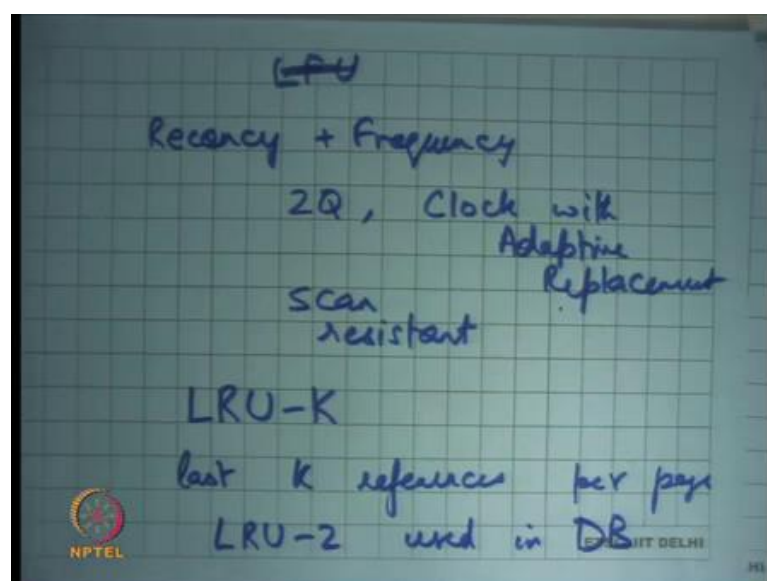 LFU
Recency + Frequency
2Q, Clock with
Adaptive
Replacement
Scan
resistant
LRU-K
last K references per page
LRU-2 used in DB
IIT DELHI
NPTEL